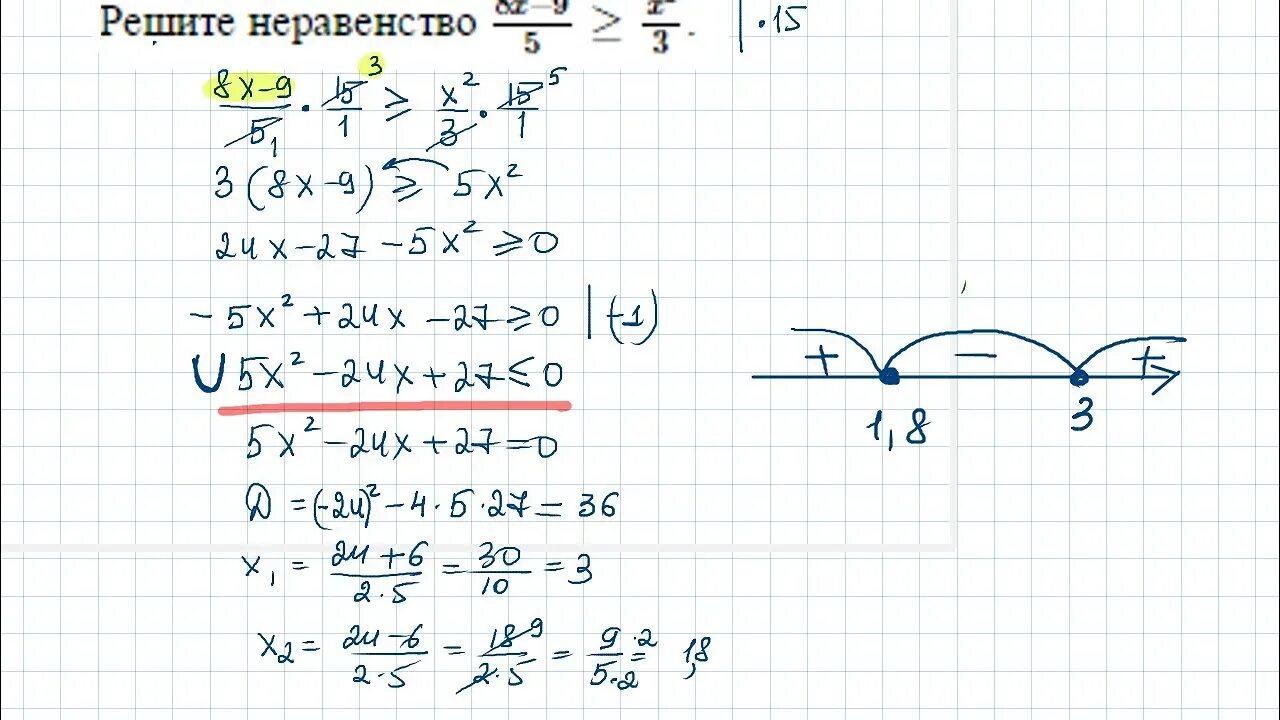 Решите неравенство (8x−9)/5 ≥ x²/3. | ·15
(8x−9)/5 1 · 15 3/1 ≥ x²/3 · 15 5/1
3(8x−9) ≥ 5x²
24x−27−5x² ≥ 0
−5x²+24x−27 ≥ 0 | (−1)
∪ 5x²−24x+27 ≤ 0
+ − +
1,8 3
5x²−24x+27=0
D = (−24)²−4·5·27 = 36
x₁ = (24+6)/(2·5) = 30/10 = 3
x₂ = (24−6)/(2·5) = 18 9/(2·5) = (9·2)/(5·2) = 1,8